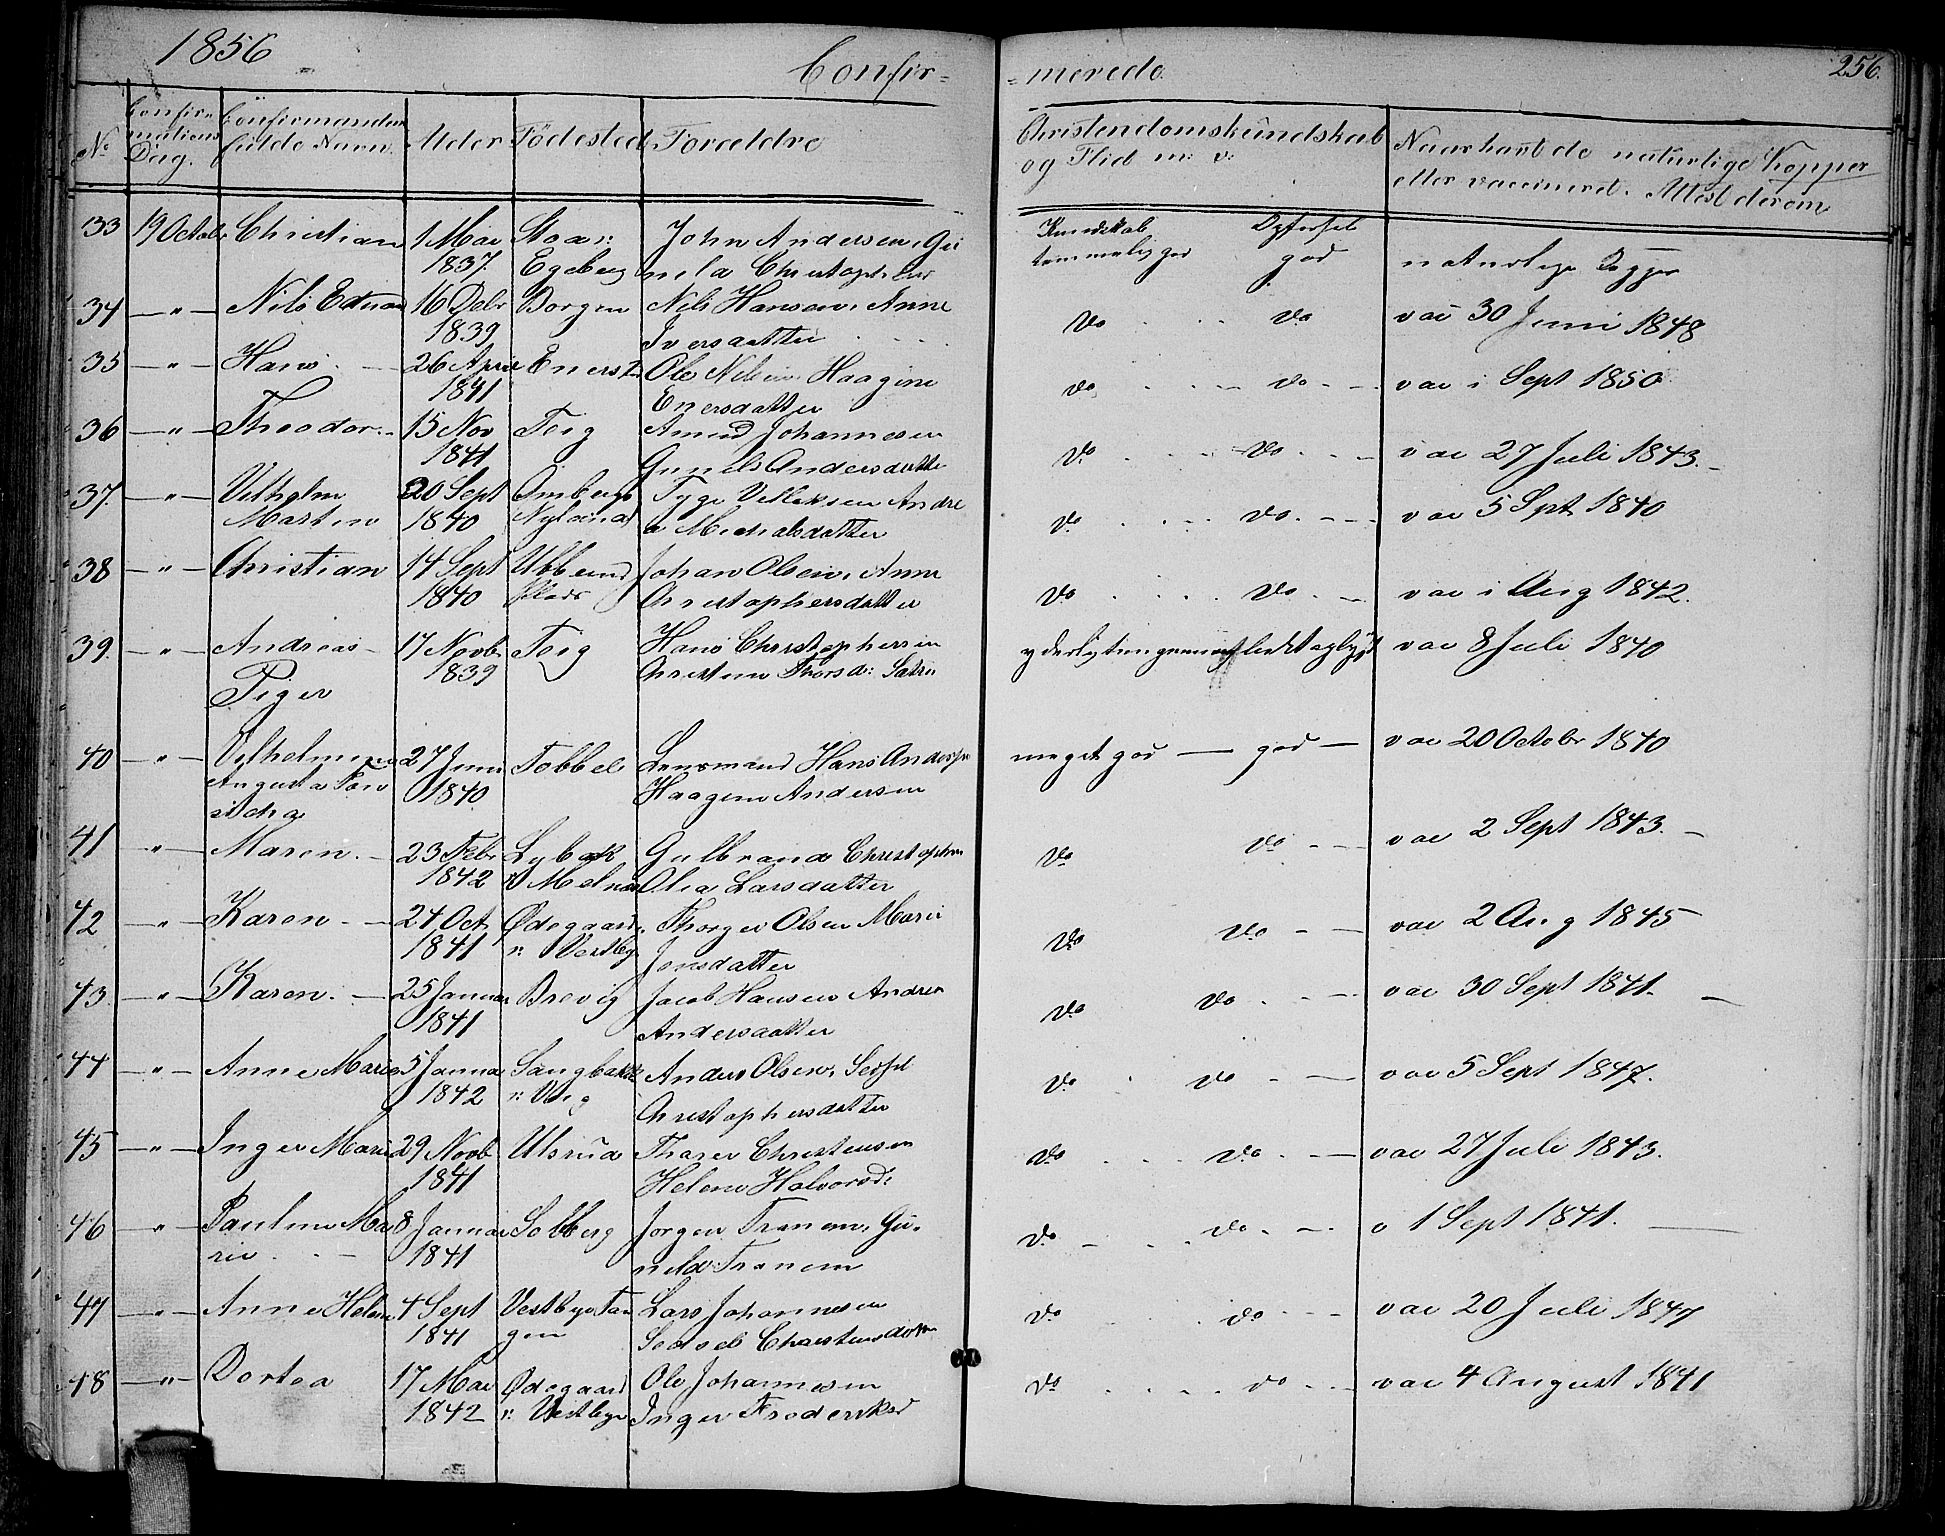 1856
Confir=
=merede
256.
No
Confir=
mations
Dag.
Confirmandens
fulde Navn.
Alder
Födested
Forældre
Christendomskundskab
og Flid m: v:
Naar havt de naturlige Kopper
eller vaccineret. Attest derom
33 19 Octobr Christian 1 Mai Staar: John Andersen, Gu Kundskab Opförsel
1837. Egeberg nila Christophers temmelig god god naturlige Kopper
34 — " — Nils Eduar 16 Debr Borgen Nels Hansen, Anne
1839 Iversdatter do do vac 30 Juni 1848
35 — " — Hans 26 April Enerst Ole Nelsen, Haagine
1841 Enersdatter do do vac i Sept 1850
36 — " — Theodor 15 Nov Teig Amund Johannesen
1841 Gunels Andersdatte do do vac 27 Juli 1843.
37. — " — Vilhelm 20 Sept Omberg Tyge Velleksen Andre
Martin 1840 Nyland a Michalsdatter do do vac 5 Sept 1840
38 — " — Christian 14 Sept Ubbeund Johan Olsen, Anne
1840 Plads Christophersdatter do do vac i Aug 1842.
39. — " — Andreas 17 Novb. Teig Hans Christophersen
Peger 1839 Christine Thorsd: yderlig vac 8 Juli 1840
40 — " — Vilhelmine 27 Juni Tobbel Lensmand Hans Anders
Augusta 1840 Haagine Andersen meget god — god — vac 20 Octobr 1840
41 " Maren. 23 Febr Lybak Gulbrand Christophers
1842 Olea Larsdatter do do vac 2 Sept 1843.
42 — " — Karen 24 Oct Ødegaard Thorger Olsen Marie
1841 v: Vestbye Jensdatter do do vac 2 Aug 1845
43. — " — Karen. 25 Januar Brevig Jacob Hansen Andrea
1841 Andersdatter do do vac 30 Sept 1841.
44 — " — Anne Marie 5 Januar Sangbakk Anders Olsen,
1842 Christophersdatter do do vac 5 Sept 1847.
45 — " — Inger Marie 29 Novb Ulsrud Tharer Christensen
1841 Helene Halvorsd: do do vac 27 Juli 1843.
46 — " Pauline Ma 8 Januar Solberg Jorgen Tranem, Gu=
rie 1841 neld Tranem do do v 1 Sept 1841.
47 — " — Anne Helene 4 Sept Vestbye Tan Lars Johannesen
1841 gen Christensdatter do do vac 20 Juli 1847
48 — " — Dortea 17 Mai Ødegaard Ole Johannesen
1842 v: Vestbye Inger Frederiksd do do vac 4 August 1841